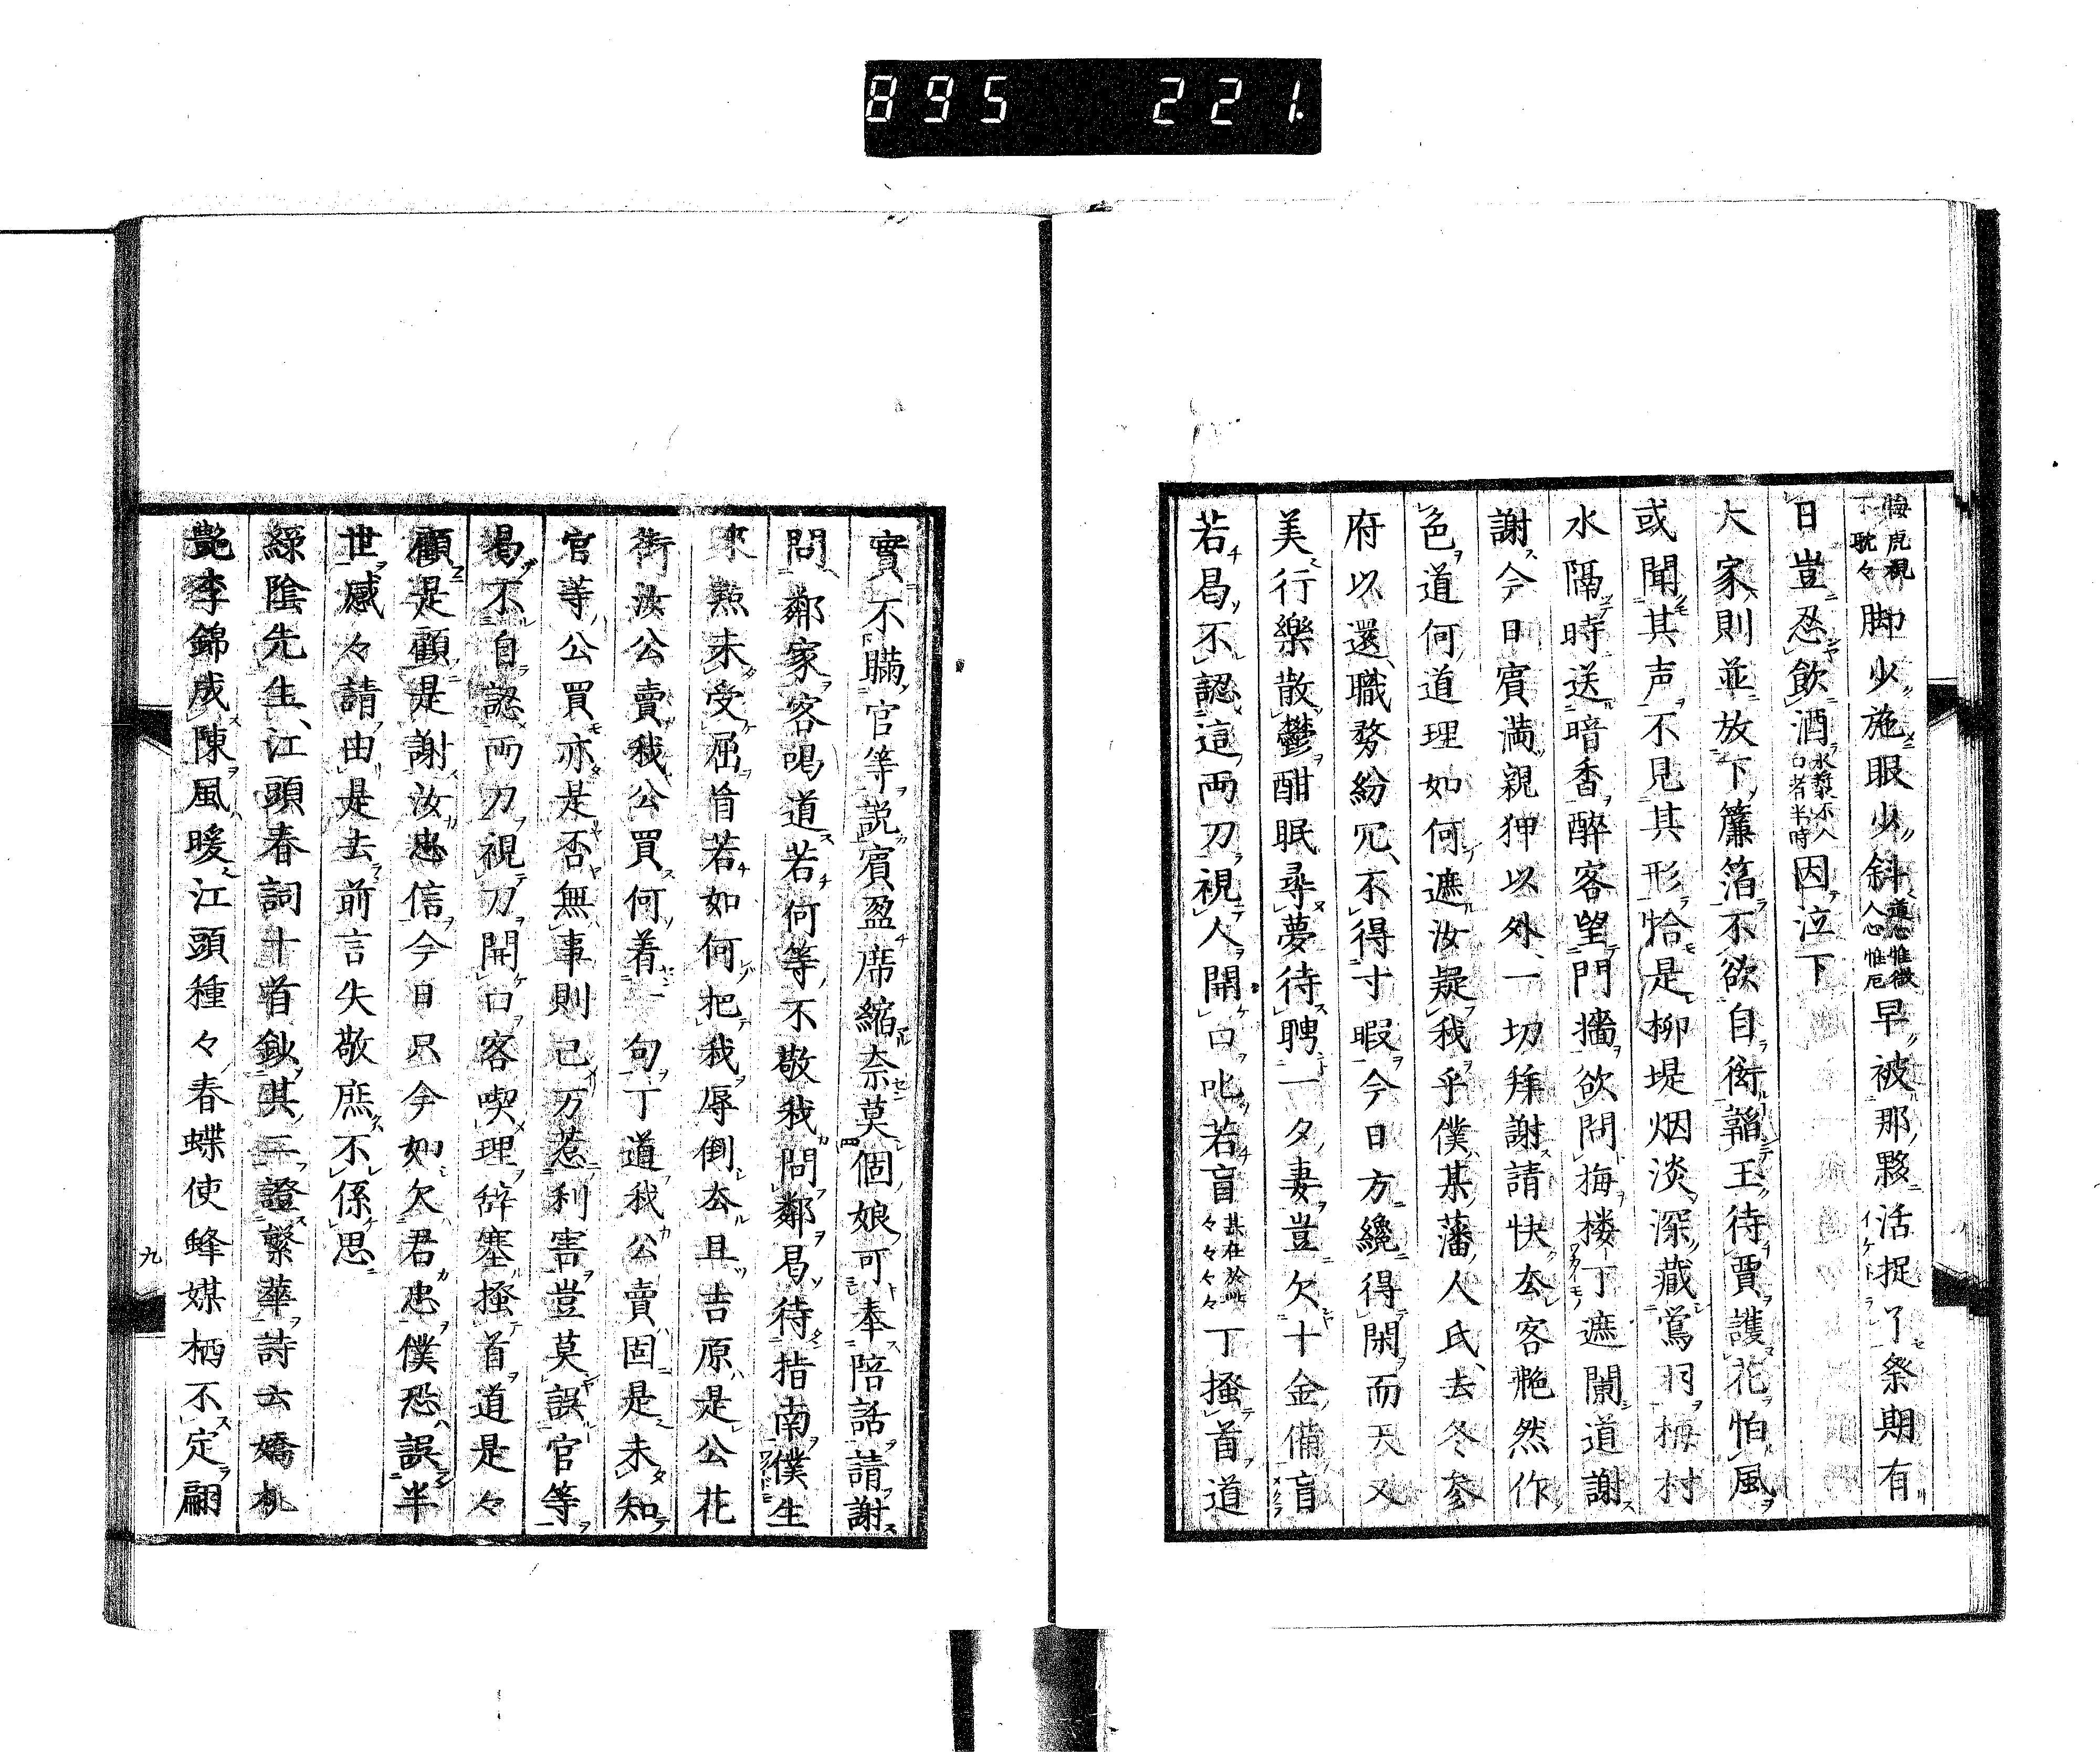 895 221.
脚少施眼少斜道心惟微人心惟厄早被那夥活捉了祭期有
日豈忍飲酒水漿不入口者半時因泣下
大家則並放下簾箔不欲自衒韜玉待賈護花怕風
或聞其声不見其形恰是柳堤烟淡深藏鶯羽梅村
水隔時送暗香醉客望門墻欲問梅楼丁遮闌道謝
謝今日賓満親狎以外一切拜謝請快去客艴然作
色道何道理如何遮汝疑我乎僕某藩人氏去冬参
府以還職務紛冗不得寸暇今日方纔得閑而天又
美行樂散鬱酣眠尋夢待聘一夕妻豈欠十金備盲
若曷不認這両刀視人開口叱若盲々々々々丁掻首道
實不瞞官等説賓盈席縮奈莫個娘可奉陪話請謝
問鄰家客喝道若何等不敬我問鄰曷待指南僕生
來點未受屈首若如何把我辱倒去且吉原是公花
街汝公賣我公買何着一句丁道我公賣固是未知
官等公買亦是否無事則已万惹利害豈莫誤官等
曷不自認両刀視刀開口客喫理辞塞掻首道是々
顧是顧是謝汝忠信今日只今如欠君忠僕恐誤半
世感々請由是去前言失敬庶不係思
緑陰先生江頭春詞十首鈔其二證繁華詩云嬌桃
艶李錦成陳風暖江頭種々春蝶使蜂媒栖不定翩
九